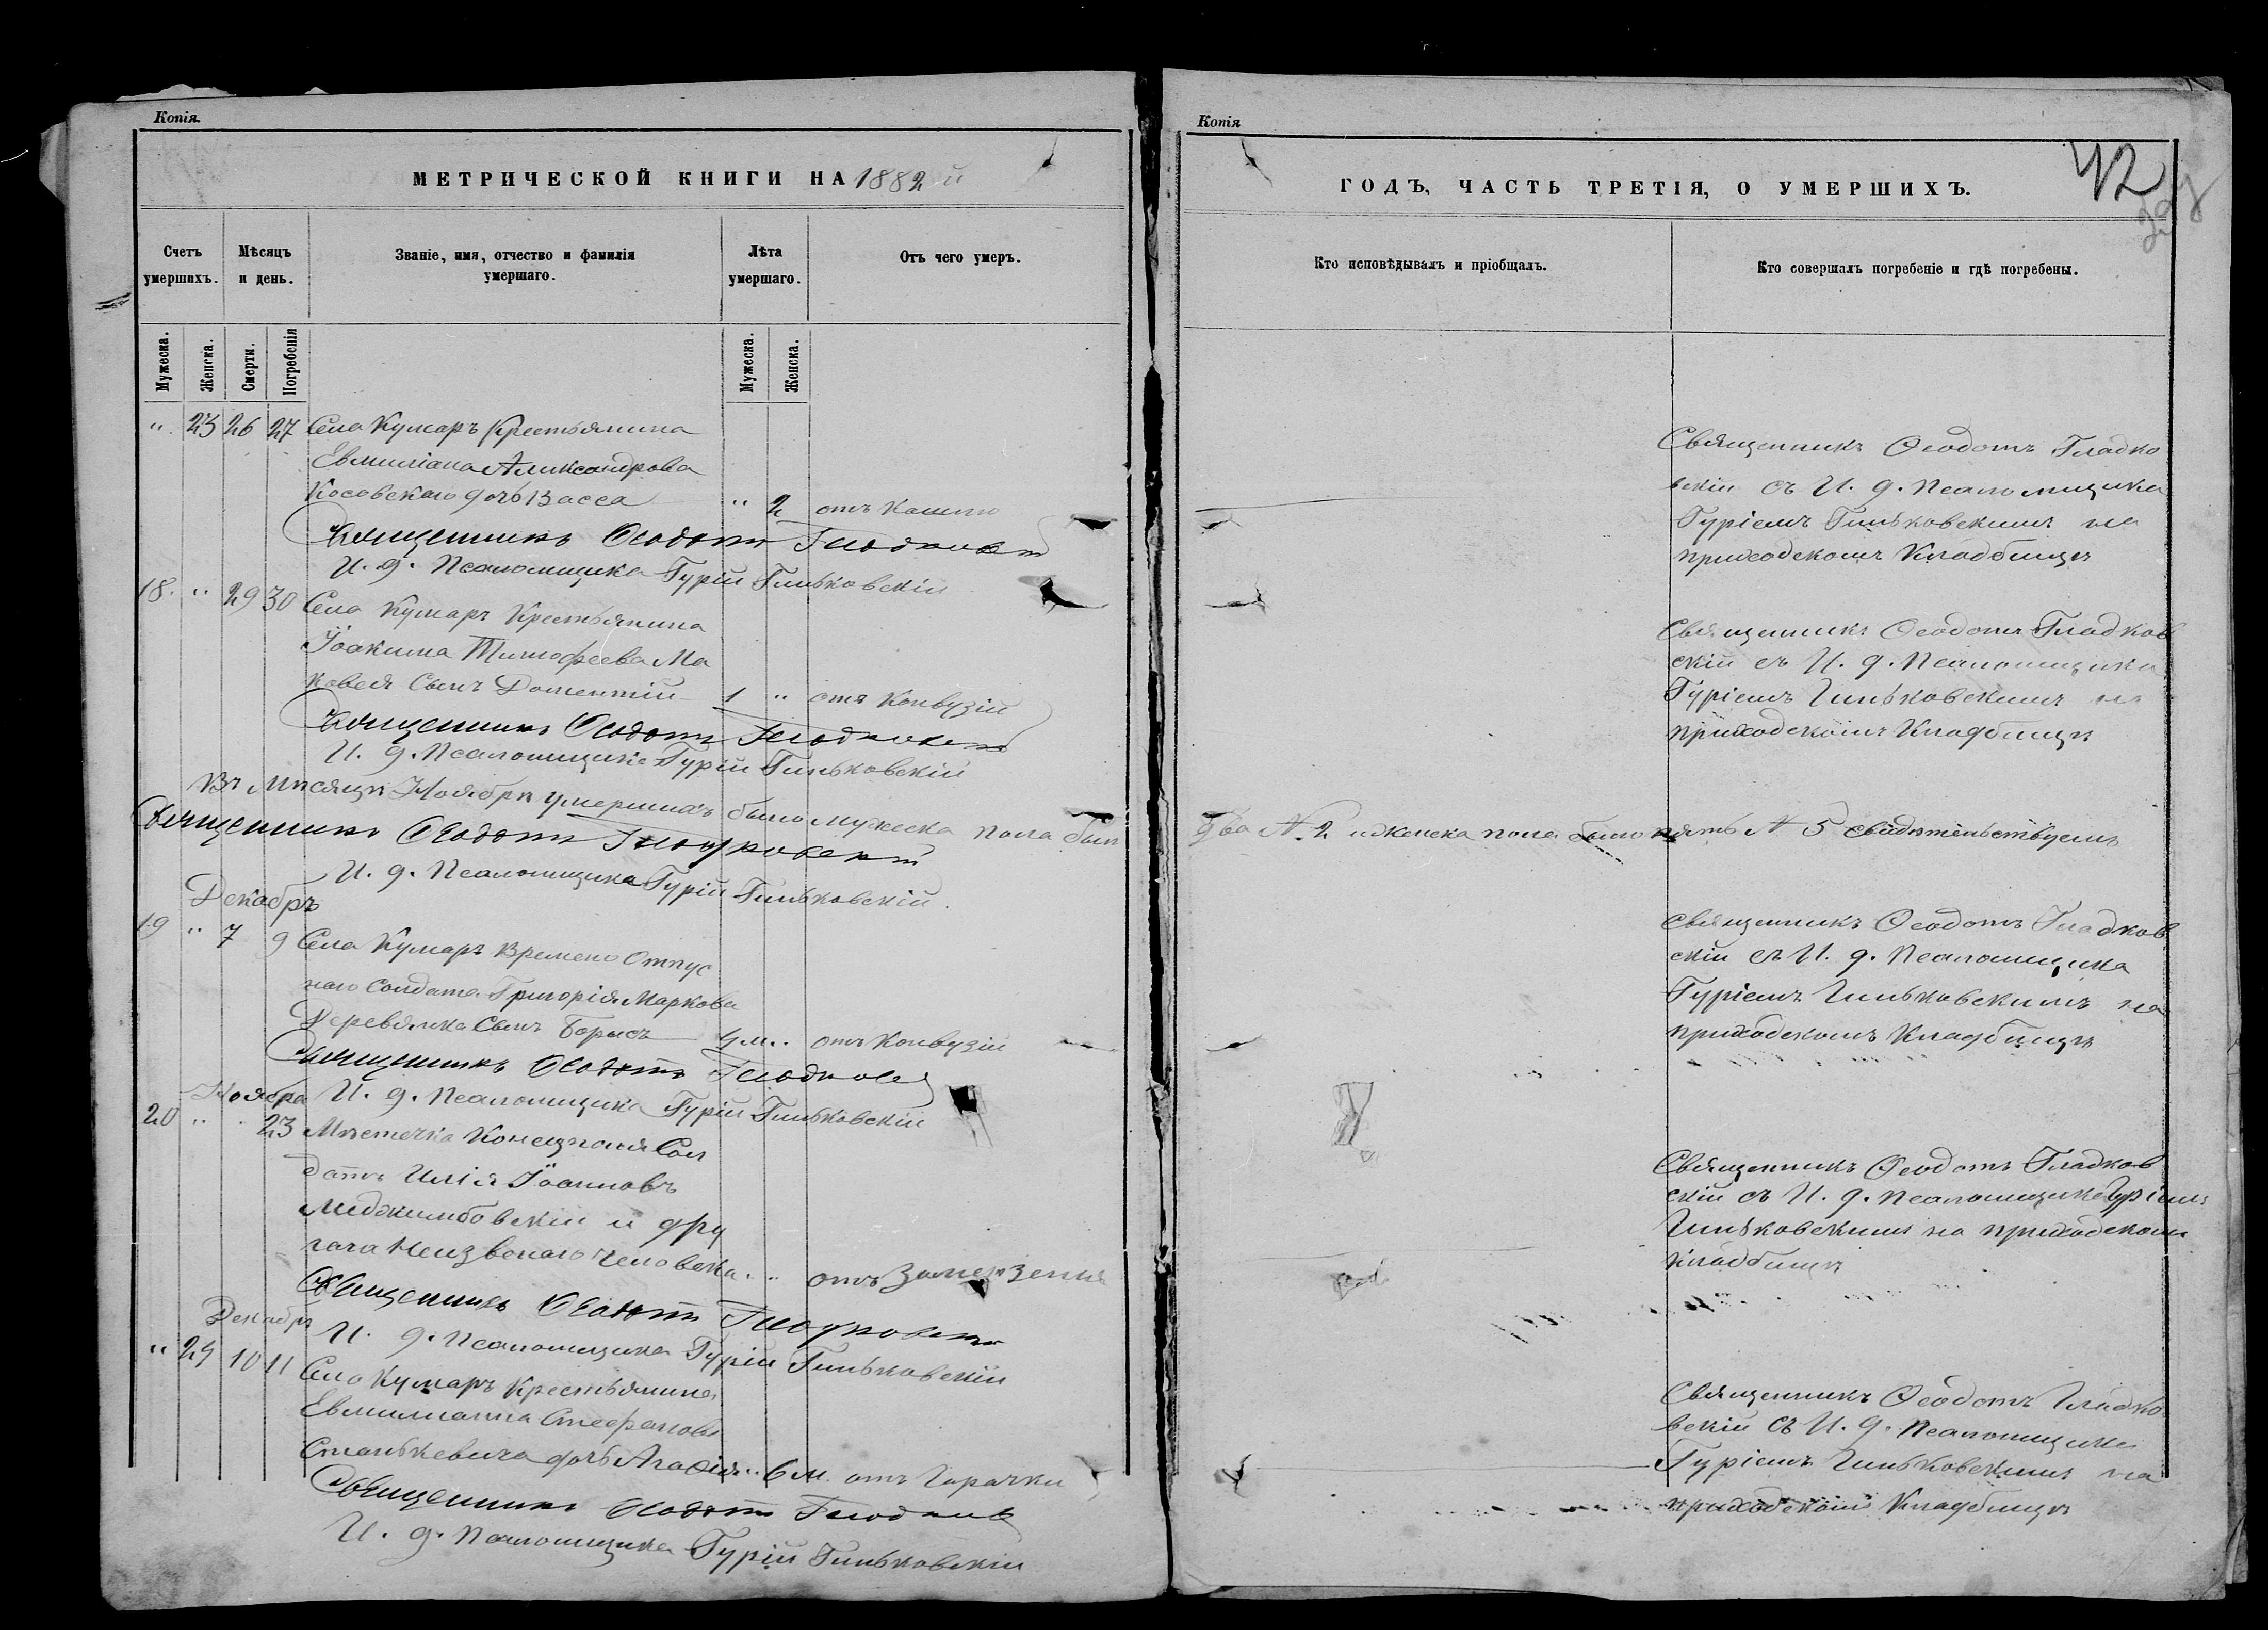 Копія.
МЕТРИЧЕСКОЙ КНИГИ НА 1882 й
Счетъ умершихъ.
Мѣсяцъ и день.
Званіе, имя, отчество и фамилія умершаго.
Лѣта умершаго.
Отъ чего умеръ.
Мужеска.
Женска.
Смерти.
Погребенія
Мужеска.
Женска.
" 23 26 27 Села Кумаръ Крестьянина
Евмиліана Александрова
Косовскаго дочь Васса " 2 отъ Кашлю
Священникъ Ѳеодотъ Гладковскій
И. д. Псаломщика Гурій Гиньковскій
18. " 29 30 Села Кумаръ Крестьянина
Іоакима Тимофеева Ма
ковея Сынъ Дометтій 1 " отъ Конвузій
Священникъ Ѳеодотъ Гладковскій
И. д. Псаломщика Гурій Гиньковскій
Въ Мѣсяцѣ Ноябрѣ умершихъ было мужеска пола было
Священникъ Ѳеодотъ Гладковскій
И. д. Псаломщика Гурій Гиньковскій.
Декабрь
19 " 7 9 Села Кумаръ Времено Отпус
наго Солдата Григорія Маркова
Деревянка Сынъ Борисъ 4 м. . отъ Конвузіи
Священникъ Ѳеодотъ Гладковскій
Ноября И. д. Псаломщика Гурій Гиньковскій
20 " " 23 Мѣстечка Конецполя Сол
датъ Илія Іоанновъ
и дру
гаго Неизвеснаго человека . " отъ Замерзенія
Священникъ Ѳеодотъ Гладковскій
Декабрь И. д. Псаломщика Гурій Гиньковскій
" 24 10 11 Села Кумаръ Крестьянина
Евмилианна Стефанова
Станькевича дочь Агафія " 6 м. отъ Горачки
Священникъ Ѳеодотъ Гладковскій
И. д. Псаломщика Гурій Гиньковскій
Копія
ГОДЪ, ЧАСТЬ ТРЕТІЯ, О УМЕРШИХЪ.
42
Кто исповѣдывалъ и пріобщалъ.
Кто совершалъ погребеніе и гдѣ погребены.
Священникъ Ѳеодотъ Гладко
вскій съ И. д. Псаломщика
Гуріемъ Гиньковскимъ на
приходскомъ Кладбищѣ
Священникъ Ѳеодотъ Гладков
скій съ И. д. Псаломщика
Гуріемъ Гиньковскимъ на
приходскомъ Кладбищѣ
два № 2 и женска пола было пять № 5 свидѣтельствуемъ
Священникъ Ѳеодотъ Гладков
скій съ И. д. Псаломщика
Гуріемъ Гиньковскимъ на
приходскомъ Кладбищѣ
Священникъ Ѳеодотъ Гладков
скій съ И. д. Псаломщика Гуріемъ
Гиньковскимъ на приходскомъ
Кладбищѣ
Священникъ Ѳеодотъ Гладко
вскій съ И. д. Псаломщика
Гуріемъ Гиньковскимъ на
приходскомъ Кладбищѣ